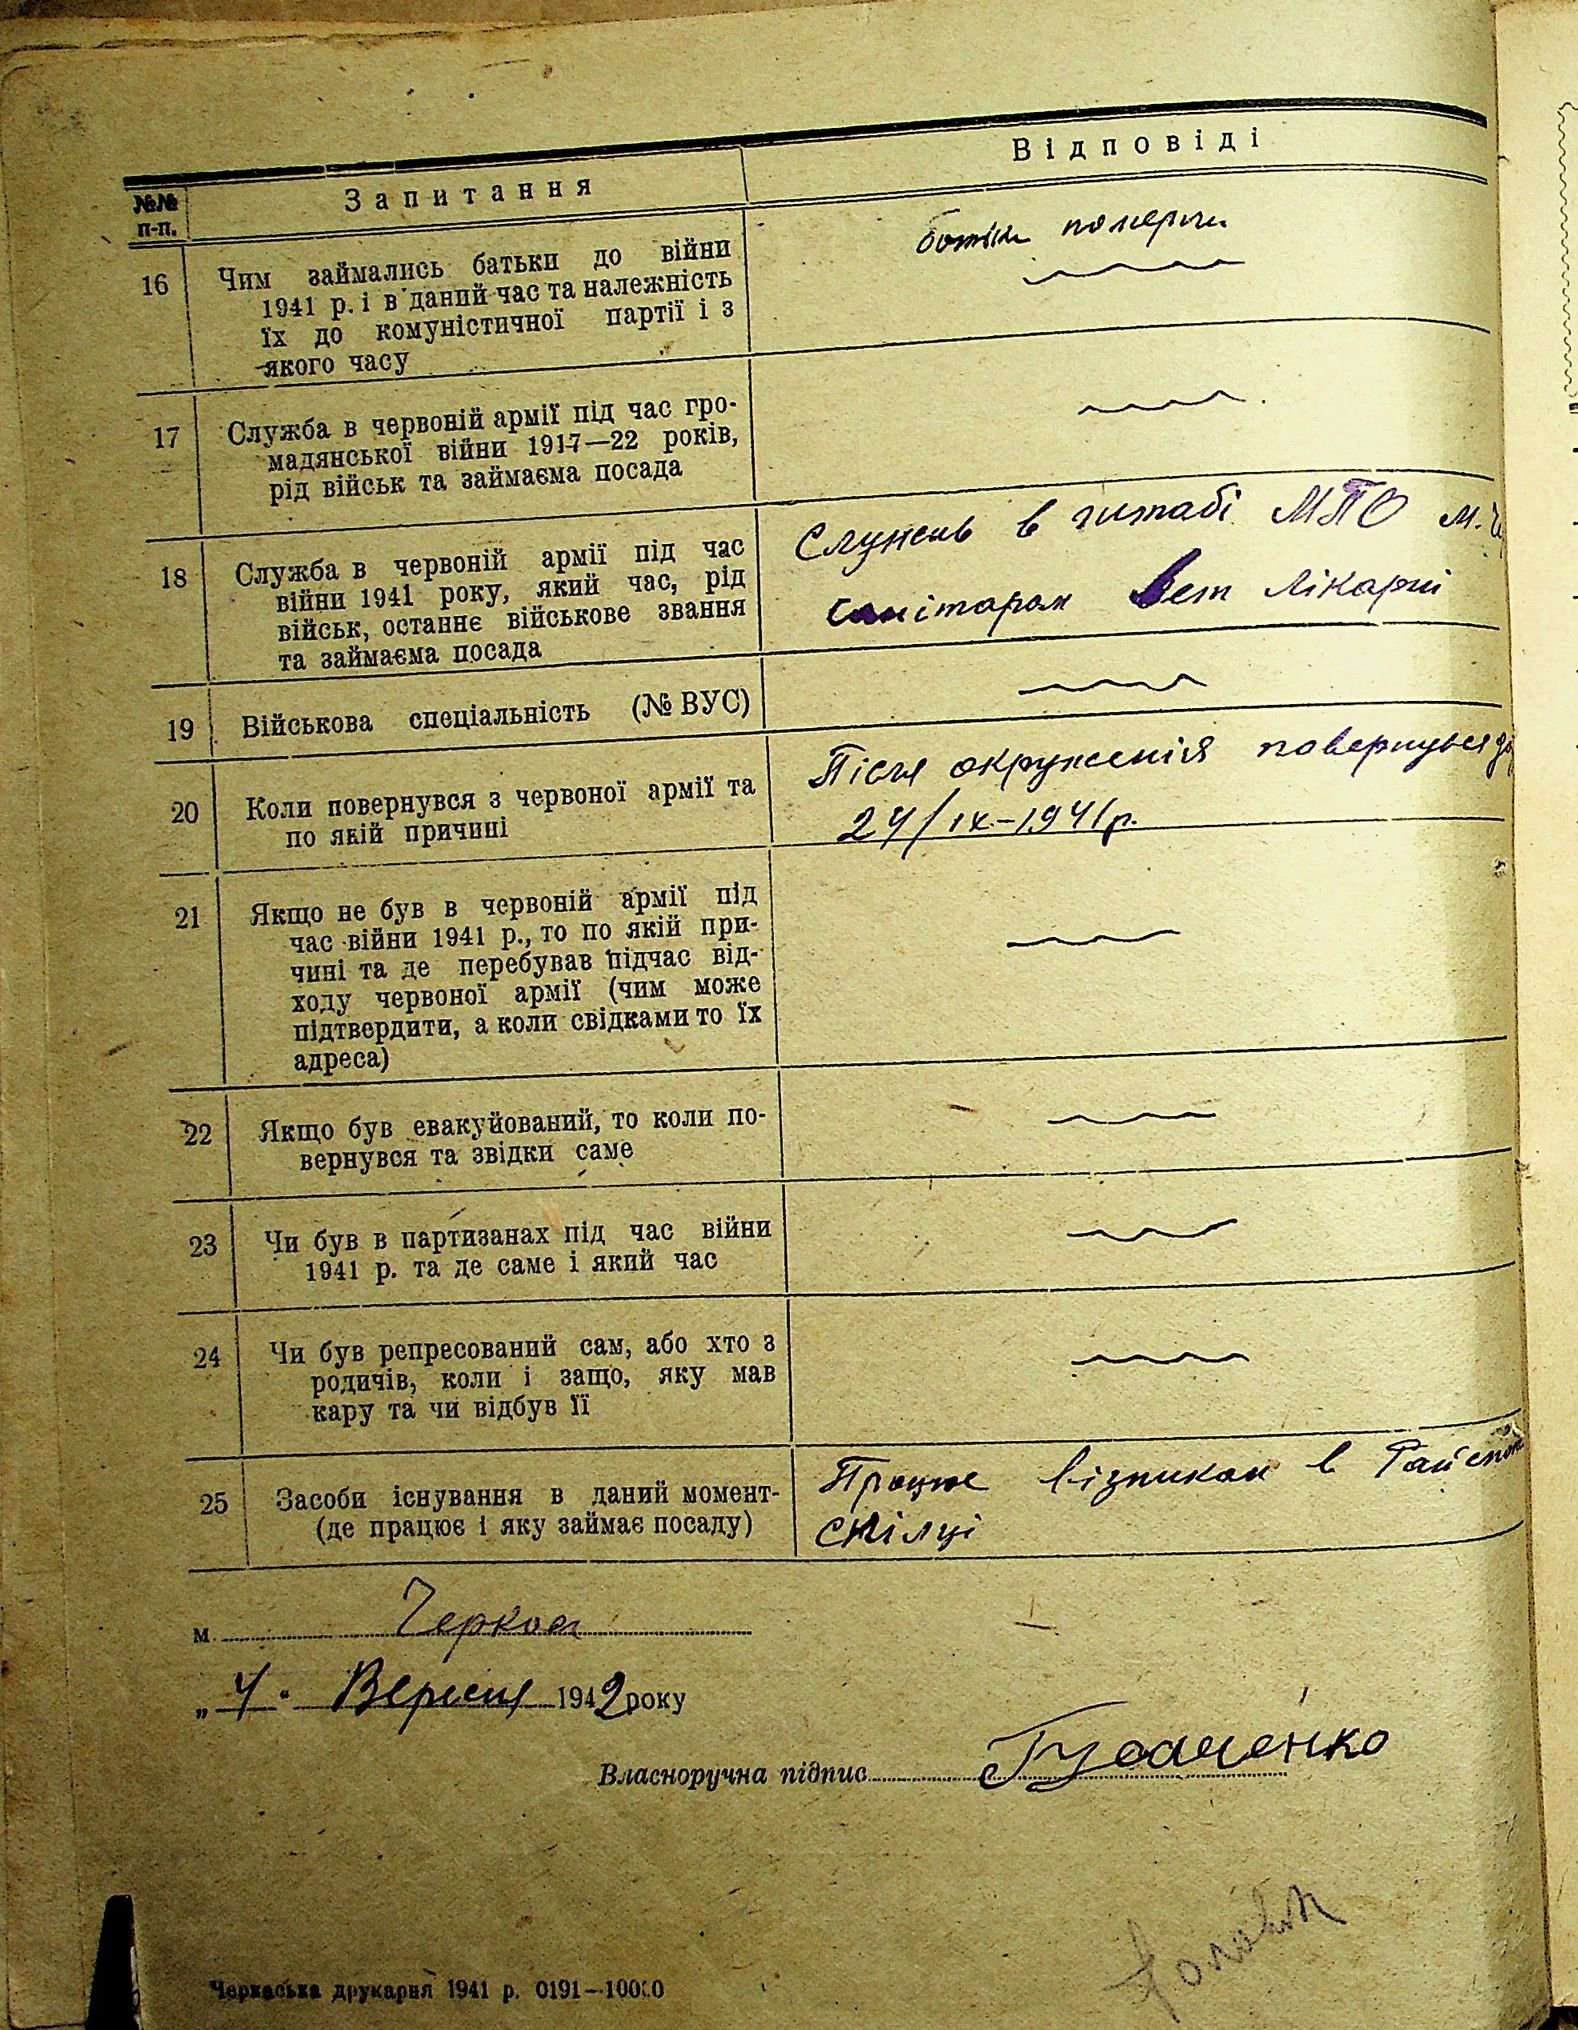 №№ п-п.
Запитання
Відповіді
16
Чим займались батьки до війни
1941 р. і в даний час та належність
їх до комуністичної партії і з
якого часу
батьки померли
17
Служба в червоній армії під час гро-
мадянської війни 1917—22 років,
рід військ та займаєма посада
18
Служба в червоній армії під час
війни 1941 року, який час, рід
військ, останнє військове звання
та займаєма посада
Служив в штабі МПО м. Ч
санітаром Вет лікарні
19
Військова спеціальність (№ ВУС)
20
Коли повернувся з червоної армії та
по якій причині
Після окруженія повернувся до
24/IX-1941р.
21
Якщо не був в червоній армії під
час війни 1941 р., то по якій при-
чині та де перебував підчас від-
ходу червоної армії (чим може
підтвердити, а коли свідками то їх
адреса)
22
Якщо був евакуйований, то коли по-
вернувся та звідки саме
23
Чи був в партизанах під час війни
1941 р. та де саме і який час
24
Чи був репресований сам, або хто з
родичів, коли і защо, яку мав
кару та чи відбув її
25
Засоби існування в даний момент-
(де працює і яку займає посаду)
Працює візником в Райспож
спілці
м. Черкаси
„4" Вересня 1942 року
Власноручна підпис
Черкаська друкарня 1941 р. 0191—10000